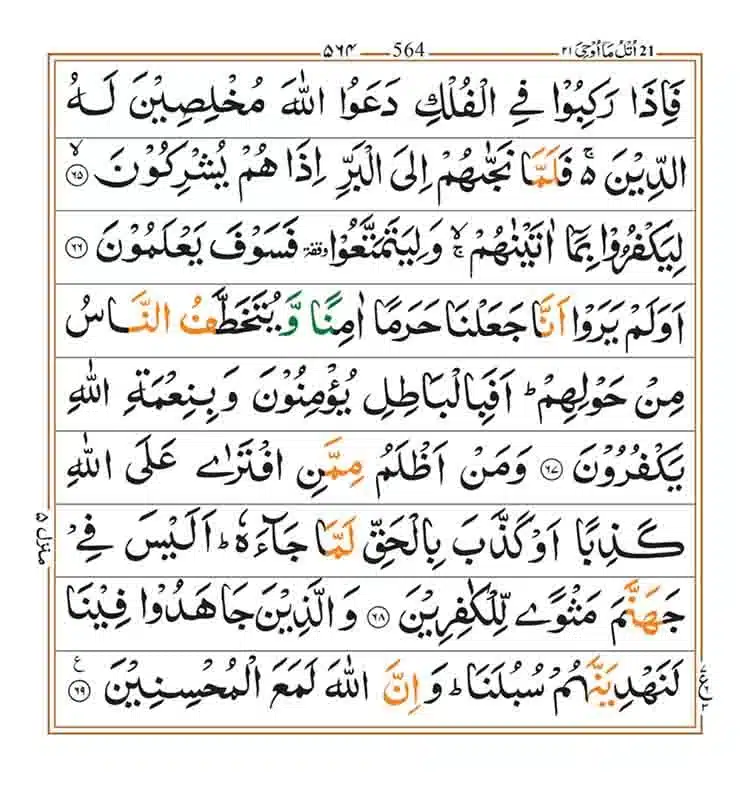 21 اُتْلُ مَآ اُوْحِیَ ٢١ 564 ۵۶۴
فَاِذَا رَكِبُوْا فِی الْفُلْكِ دَعَوُا اللّٰهَ مُخْلِصِیْنَ لَهُ
الدِّیْنَ ۚ۬ فَلَمَّا نَجّٰىهُمْ اِلَى الْبَرِّ اِذَا هُمْ یُشْرِكُوْنَ ۙ﴿۶۵﴾
لِیَكْفُرُوْا بِمَاۤ اٰتَیْنٰهُمْ ۚۙ وَ لِیَتَمَتَّعُوْا ٝ وقفة فَسَوْفَ یَعْلَمُوْنَ ﴿۶۶﴾
اَوَ لَمْ یَرَوْا اَنَّا جَعَلْنَا حَرَمًا اٰمِنًا وَّ یُتَخَطَّفُ النَّاسُ
مِنْ حَوْلِهِمْ ؕ اَفَبِالْبَاطِلِ یُؤْمِنُوْنَ وَ بِنِعْمَةِ اللّٰهِ
یَكْفُرُوْنَ ﴿۶۷﴾ وَ مَنْ اَظْلَمُ مِمَّنِ افْتَرٰى عَلَى اللّٰهِ
كَذِبًا اَوْ كَذَّبَ بِالْحَقِّ لَمَّا جَآءَهٗ ؕ اَلَیْسَ فِیْ
جَهَنَّمَ مَثْوًى لِّلْكٰفِرِیْنَ ﴿۶۸﴾ وَ الَّذِیْنَ جَاهَدُوْا فِیْنَا
لَنَهْدِیَنَّهُمْ سُبُلَنَا ؕ وَ اِنَّ اللّٰهَ لَمَعَ الْمُحْسِنِیْنَ ﴿۶۹﴾ ع
منزل ۵